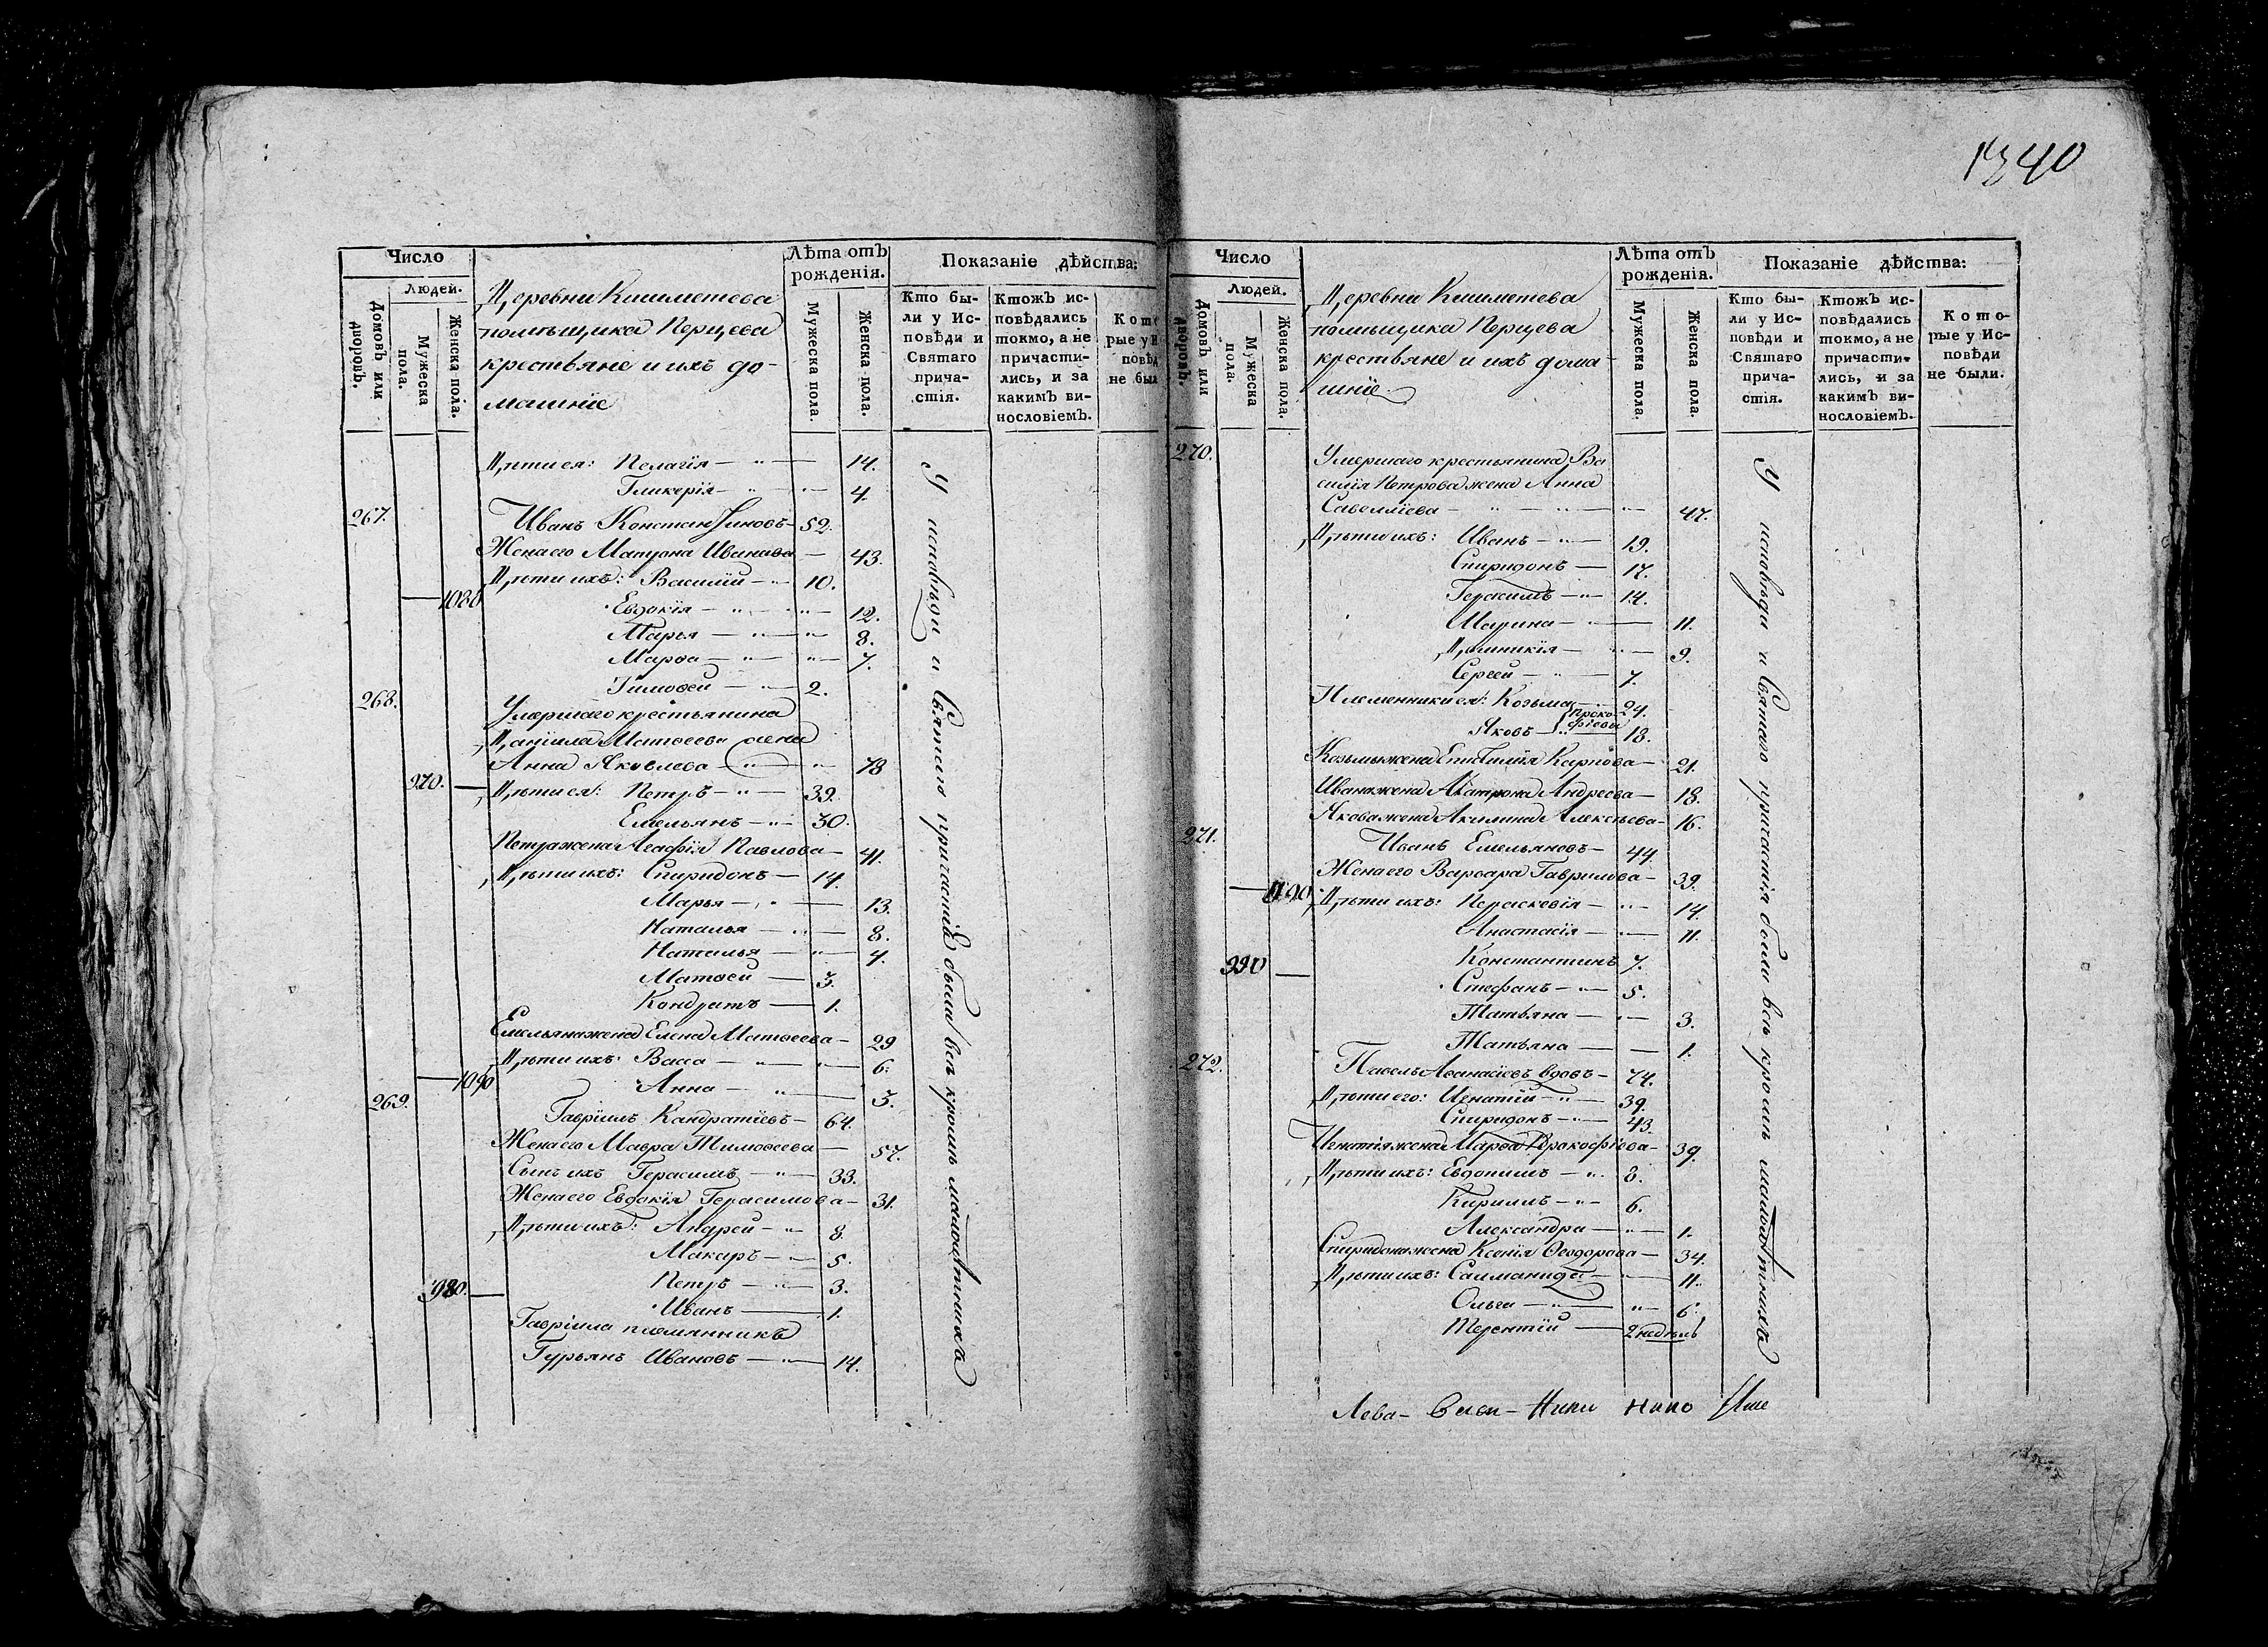 1340
Число
Людей.
Домовъ или дворовъ.
Мужеска пола.
Женска пола.
Деревни Кишметева
помѣщика Перцева
крестьяне и ихъ до-
машніе
Лѣта отъ рожденія.
Мужеска пола.
Женска пола.
Показаніе дѣйства:
Кто бы-
ли у Ис-
повѣди и
Святаго
прича-
стія.
Ктожъ ис-
повѣдались
токмо, а не
причасти-
лись, и за
какимъ ви-
нословіемъ.
Кото
рые у И
повѣд
не был
Дѣти ея: Пелагія — 14.
Гликерія — 4.
267. Иванъ Константиновъ — 52.
Жена его Матрона Иванова — 43.
Дѣти ихъ: Василій — 10.
1080
Евдокія — 12.
Марья — 8.
Марѳа — 7.
Тимоѳей — 2.
268. Умершаго крестьянина
Даніила Матѳеева жена
Анна Яковлева — 78
970. Дѣти ея: Петръ — 39.
Емельянъ — 30.
Петра жена Агафія Павлова — 41.
Дѣти ихъ: Спиридонъ — 14.
Марья — 13.
Наталья — 8.
Наталья — 4.
Матѳей — 3.
Кондратъ — 1.
Емельяна жена Елена Матѳеева — 29
Дѣти ихъ: Васса — 6.
1090 Анна — 3.
269. Гавріилъ Кондратіевъ — 64.
Жена его Мавра Тимоѳеева — 57.
Сынъ ихъ Герасимъ — 33.
Жена его Евдокія Герасимова — 31.
Дѣти ихъ: Андрей — 8.
Макаръ — 5.
Петръ — 3.
980. Иванъ — 1.
Гавріила племянникъ
Гурьянъ Ивановъ — 14.
У исповѣди и Святаго причастія были всѣ кромѣ малолѣтнихъ
Число
Людей.
Домовъ или дворовъ.
Мужеска пола.
Женска пола.
Деревни Кишметева
помѣщика Перцева
крестьяне и ихъ дома-
шніе
Лѣта отъ рожденія.
Мужеска пола.
Женска пола.
Показаніе дѣйства:
Кто бы-
ли у Ис-
повѣди и
Святаго
прича-
стія.
Ктожъ ис-
повѣдались
токмо, а не
причасти-
лись, и за
какимъ ви-
нословіемъ.
Кото-
рые у Ис-
повѣди
не были.
270. Умершаго крестьянина Ва
силія Петрова жена Анна
Савеліева — 47.
Дѣти ихъ: Иванъ — 19.
Спиридонъ — 17.
Герасимъ — 14.
Марина — 11.
Домникія — 9.
Сергей — 7.
Племянники ея: Козьма — 24.
Проко-
фіевы
Яковъ — 18.
Козьмы жена Епистимія Карпова — 21.
Ивана жена Матрона Андреева — 18.
Якова жена Акилина Алексѣева — 16.
271. Иванъ Емельяновъ — 44.
Жена его Варвара Гаврилова — 39.
Дѣти ихъ: Параскевія — 14.
Анастасія — 11.
990 Константинъ 7.
Стефанъ — 5.
Татьяна — 3.
Татьяна — 1.
272. Павелъ Аѳанасіевъ вдовъ — 74.
Дѣти его: Игнатій — 39.
Спиридонъ — 43.
Игнатія жена Марѳа Прокофіева — 39.
Дѣти ихъ: Евдокимъ — 8.
Кирилъ — 6.
Александра — 1.
Спиридона жена Ксенія Ѳеодорова — 34.
Дѣти ихъ: Саломанида — 11.
Ольга — 6.
Терентій — 2 недѣль
У исповѣди и Святаго причастія были всѣ кромѣ малолѣтнихъ